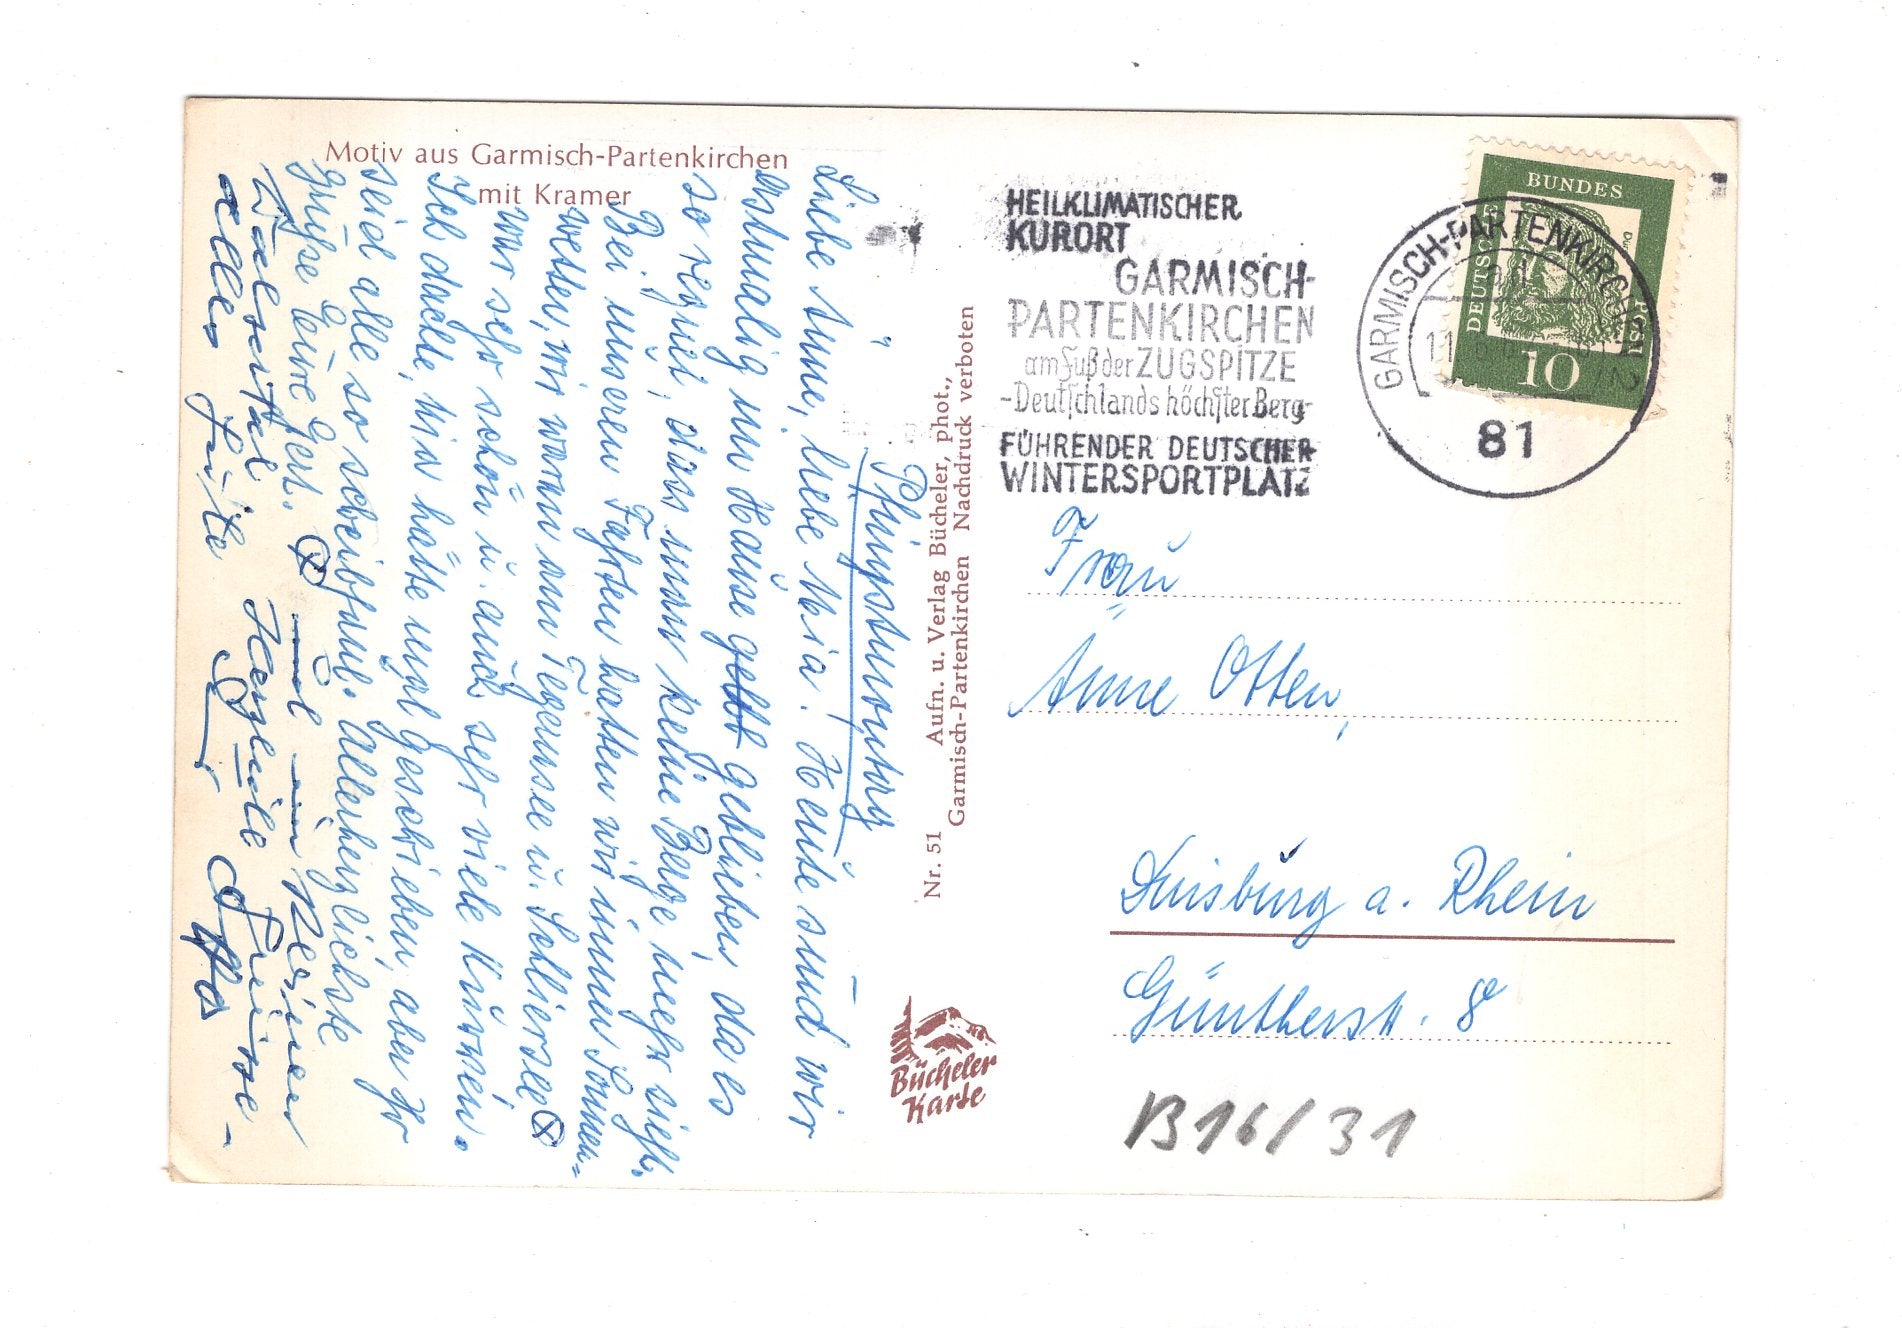 Motiv aus Garmisch-Partenkirchen
mit Kramer
Pfingstmontag
Liebe Änne, liebe Mia! Heute sind wir
erstmalig im Hause gebl geblieben, da es
so regnet, dass man keine Berge mehr sieht.
Bei unseren Fahrten hatten wir immer Sonnen-
wetter, wir waren am Tegernsee u. Schliersee ⊗
war sehr schön u. auch sehr viele Kurven.
Ich dachte, Mia hätte mal geschrieben, aber Ihr
seid alle so schreibfaul. Allerherzlichste
Grüße Eure Gert. ⊗ und im
Alles Gute Herzliche Grüsse -
Nr. 51 Aufn. u. Verlag Bücheler, phot.,
Garmisch-Partenkirchen Nachdruck verboten
Bücheler
Karte
HEILKLIMATISCHER
KURORT
GARMISCH-
PARTENKIRCHEN
am Fuß der ZUGSPITZE
-Deutschlands höchster Berg-
FÜHRENDER DEUTSCHER
WINTERSPORTPLATZ
GARMISCH-PARTENKIRCHEN 2
ad
81
DEUTSCHE BUNDESPOST
10
Frau
Änne Otten,
Duisburg a. Rhein
Güntherstr. 8
B16/31